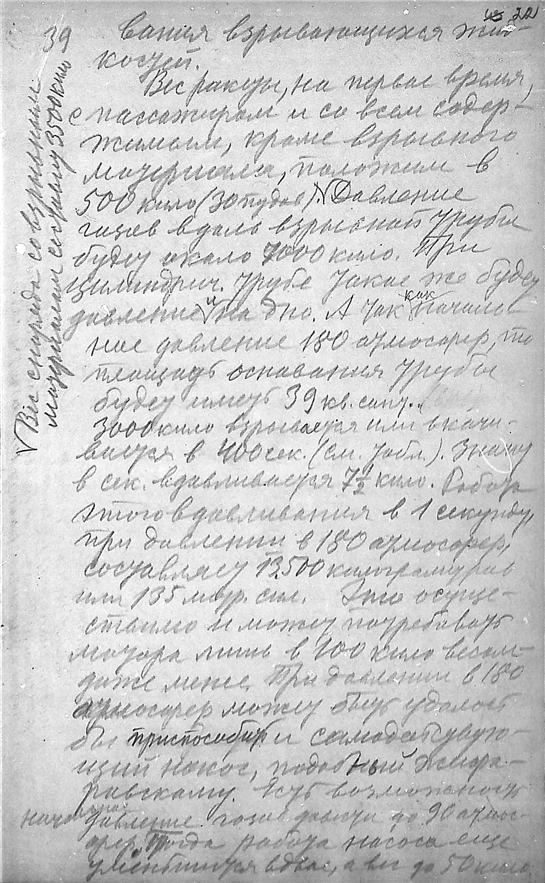 39
22
вания взрывающихся жид-
костей.
Вес ракеты, на первое время,
с пассажиром и со всем содер-
жимым, кроме взрывного
материала, положим в
500 кило (30 пудов). √ Давление
газов вдоль взрывной трубы
будет около 7000 кило. При
цилиндрич. трубе такое же будет
давление и на дно. А так как началь-
ное давление 180 атмосфер, то
площадь основания трубы
будет иметь 39 кв. сант.
3000 кило взрывается или вкачи-
вается в 400 сек. (См. табл.). Значит
в сек. вдавливается 7½ кило. Работа
этого вдавливания в 1 секунду,
при давлении в 180 атмосфер,
составляет 13500 килограметров
или 135 метр. сил. Это осуще-
ствимо и может потребовать
мотора лишь в 100 кило весом-
даже менее. При давлении в 180
атмосфер может быть удалось
бы приспособить и самодействую-
щий насос, подобный Жифа-
ровскому. Есть возможность
давление газов довести до 90 атмос-
фер. Тогда работа насоса еще
уменьшится вдвое, а вес до 50 кило.
√ Вес снаряда со взрывным
материалом составит 3500 кило